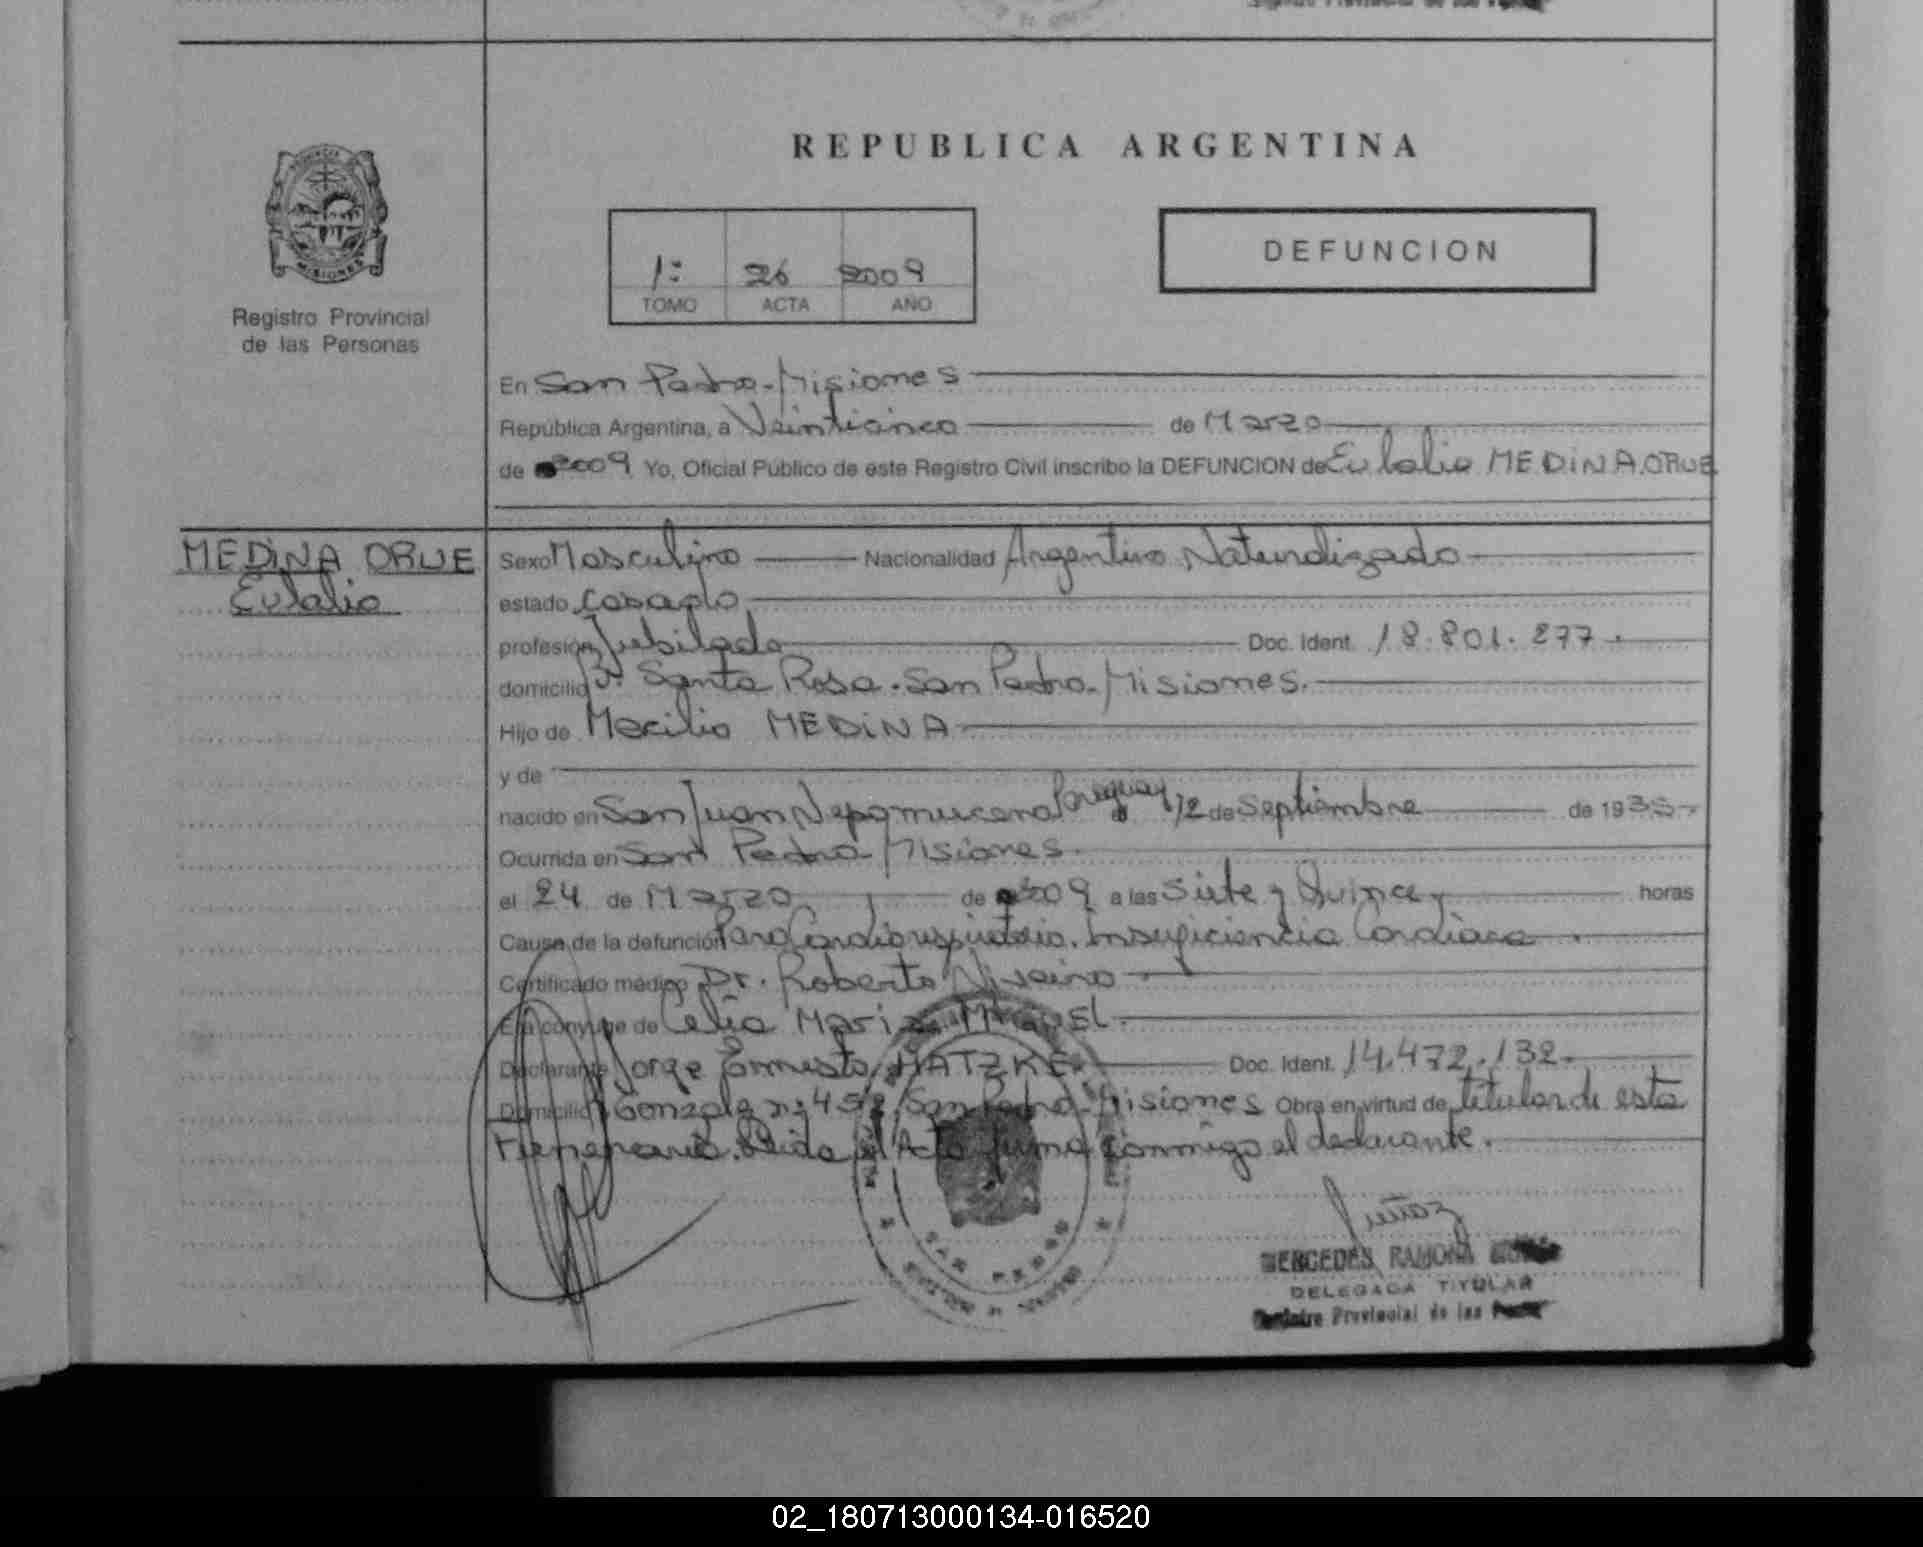 REPUBLICA ARGENTINA
PROVINCIA DE
MISIONES
Registro Provincial
de las Personas
1º 26 2009
TOMO ACTA AÑO
DEFUNCION
En San Pedro-Misiones
República Argentina, a Veinticinco de Marzo
de 2009 Yo, Oficial Público de este Registro Civil inscribo la DEFUNCION de Eulalio MEDINA.ORUE
MEDINA ORUE
Eulalio
Sexo Masculino Nacionalidad Argentino Naturalizado
estado Casado
profesión Jubilado Doc. Ident. 18.801.277.
domicilio Bº Santa Rosa. San Pedro-Misiones.
Hijo de Mecilio MEDINA
y de
nacido en San Juan Nepomuceno Paraguay el 12 de Septiembre de 1935
Ocurrida en San Pedro-Misiones.
el 24 de Marzo de 2009 a las Siete y Quince horas
Causa de la defunción Paro Cardiorespiratorio. Insuficiencia Cardíaca.
Certificado médico Dr. Roberto
Era cónyuge de Celia Maria
Declarante Jorge Ernesto HATZKE Doc. Ident. 14.472.132.
Domicilio Gonzalez nº 458 San Pedro-Misiones Obra en virtud de titular de esta
Funeraria. Leida el Acta firma conmigo el declarante.
SAN PEDRO
MERCEDES RAMONA
DELEGADA TITULAR
Registro Provincial de las
02_180713000134-016520